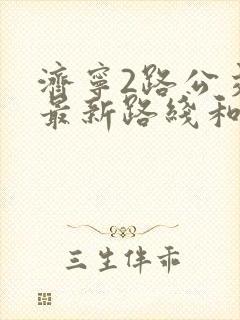 濟寧2路公交
最新路綫和
三生伴乖